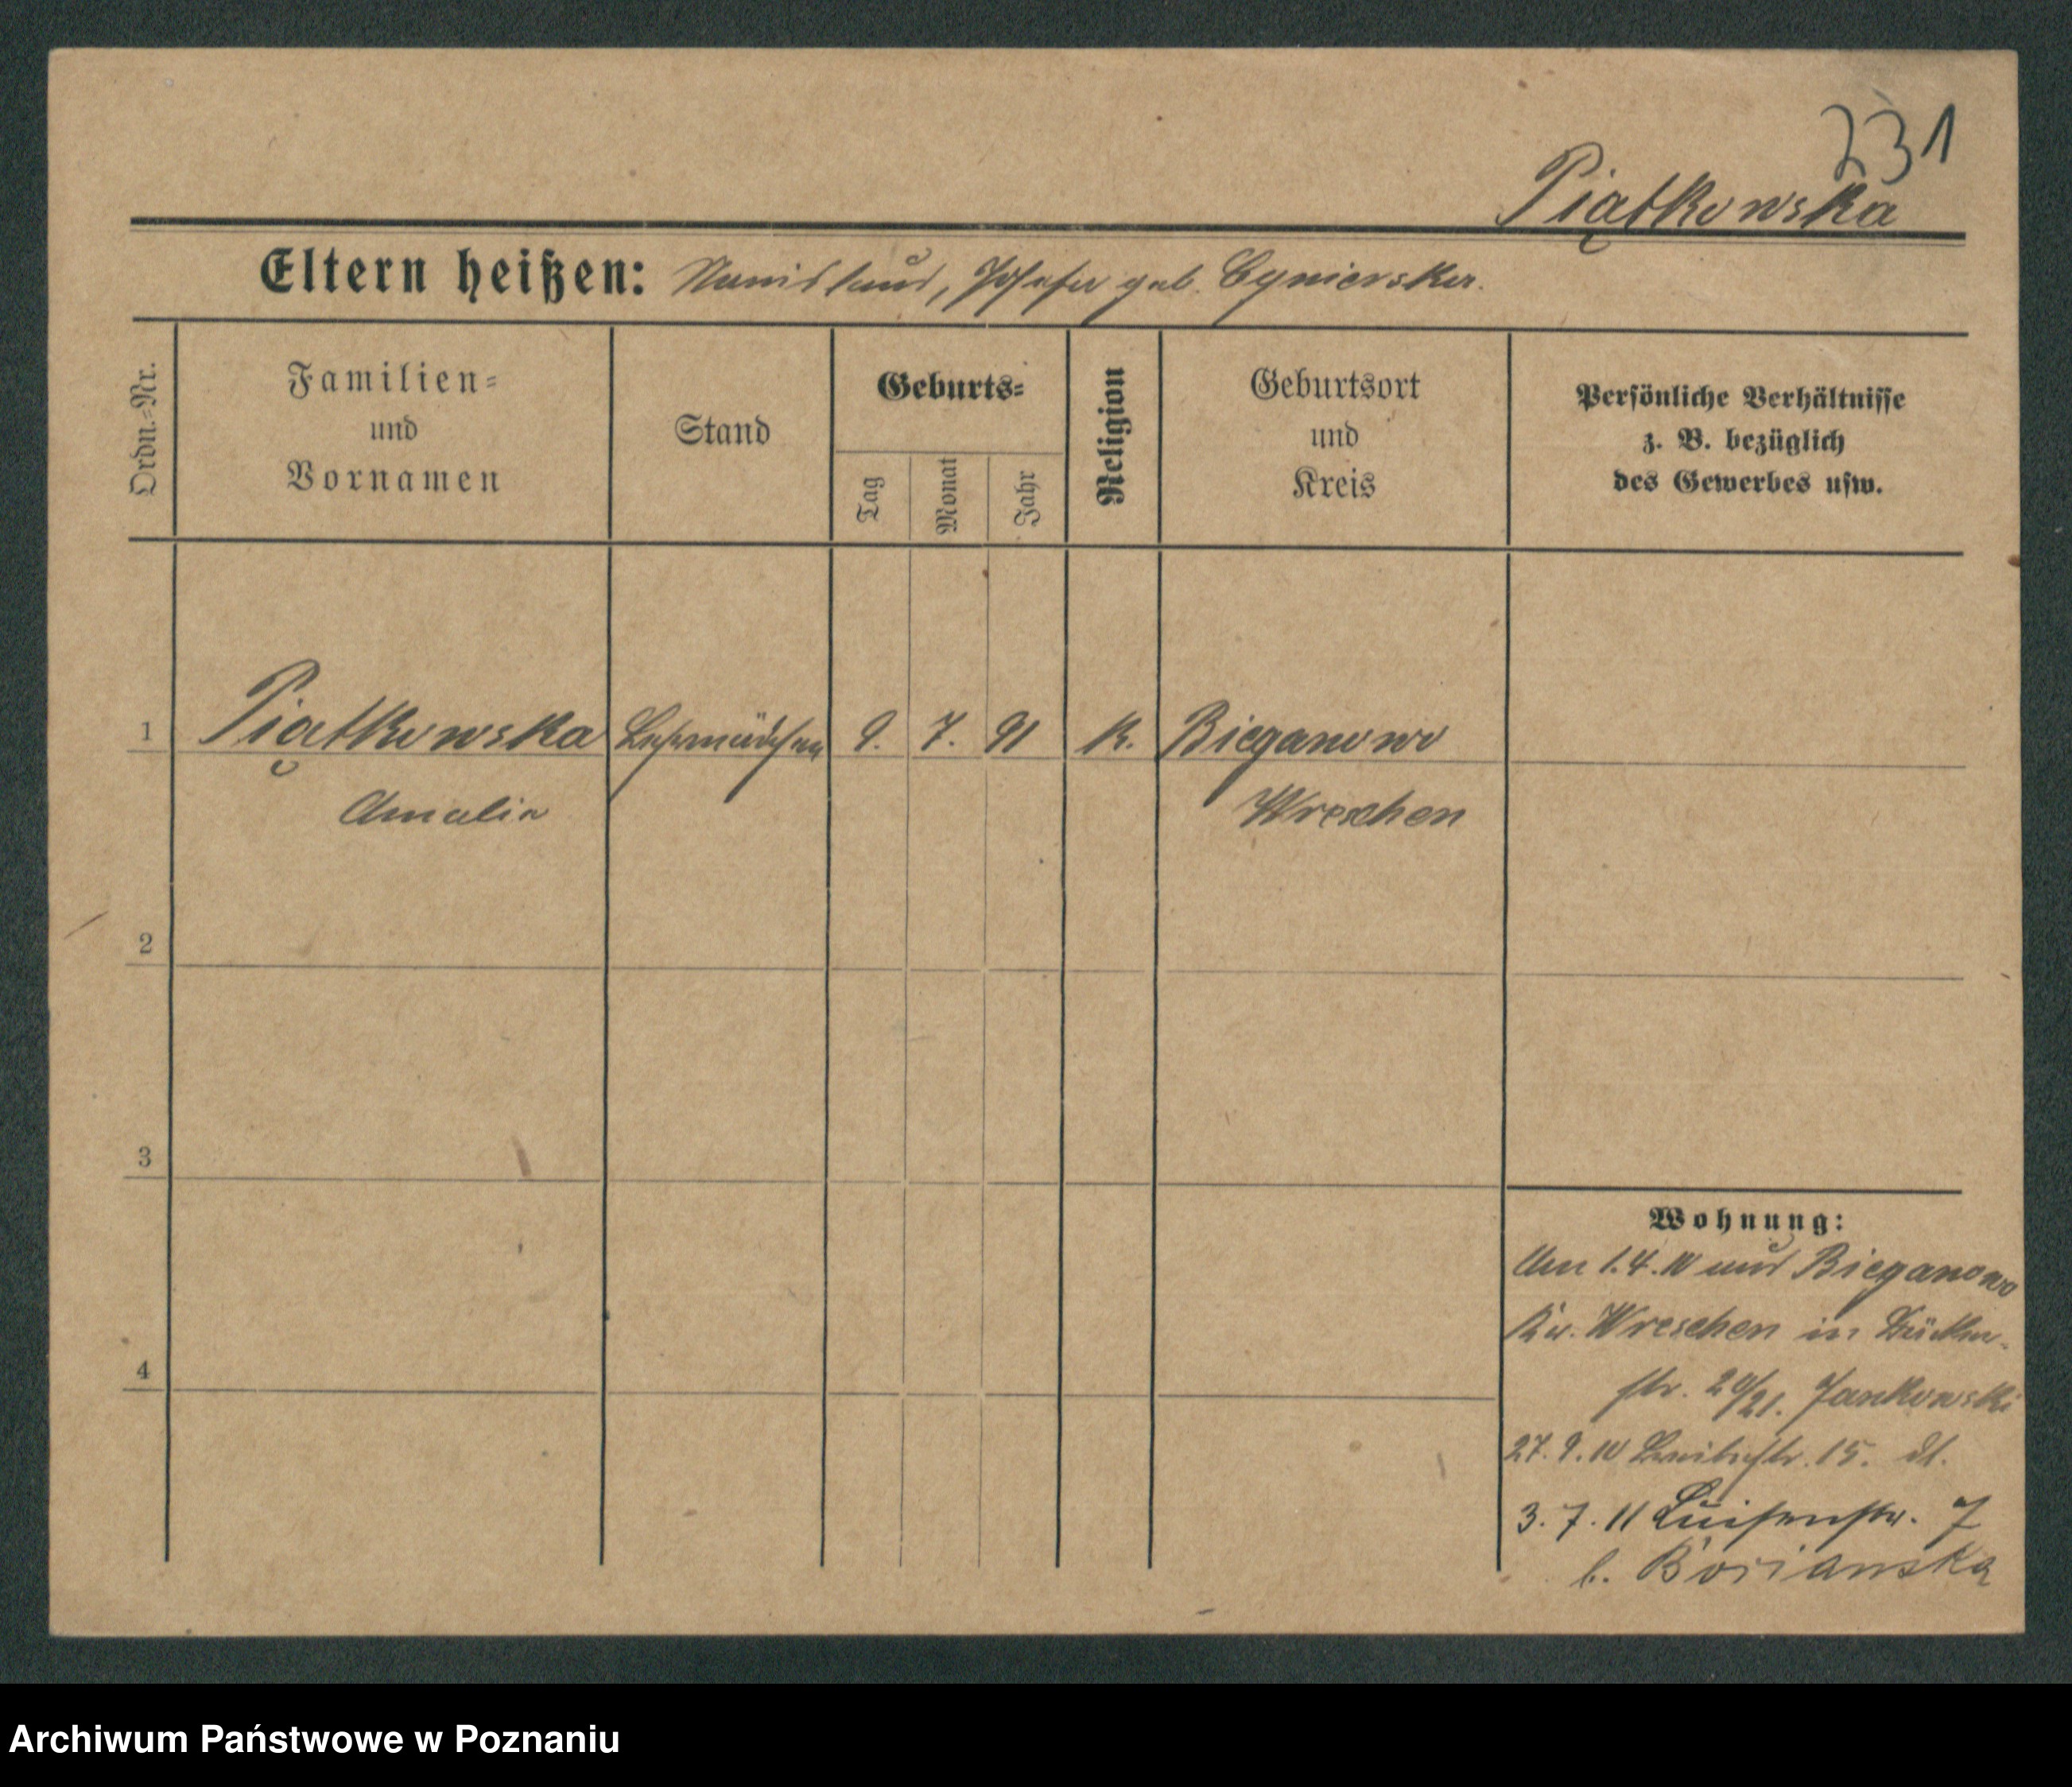 231
Piątkowska
Eltern heißen: Stanislaus, Josefa geb. Cynierska.
Ordn.=Nr.
Familien=
und
Vornamen
Stand
Geburts=
Tag
Monat
Jahr
Religion
Geburtsort
und
Kreis
Persönliche Verhältnisse
z. B. bezüglich
des Gewerbes usw.
1 Piątkowska Lehrmädchen 9. 7. 91 K. Bieganowo
Amalia Wreschen
2
3
4
Wohnung:
Am 1.4.10 aus Bieganowo
Kr. Wreschen in
str. 20/21. Jankowski
27.9.10 15.
3.7.11 Luisenstr. 7
b.
Archiwum Państwowe w Poznaniu